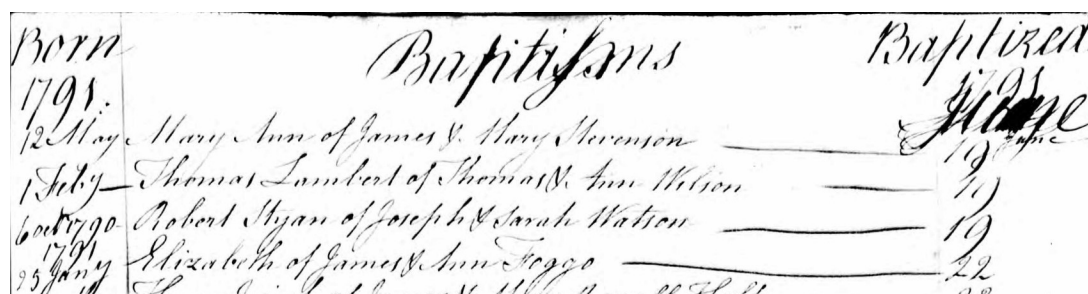 Born Baptisms Baptized
1791. 1791
June
12 May Mary Ann of James & Mary Stevenson 19 June
1 Feby Thomas Lambert of Thomas & Ann Wilson 19
6 Oct 1790 Robert Hyan of Joseph & Sarah Watson 19
1791
25 Jany Elizabeth of James & Ann Foggo 22